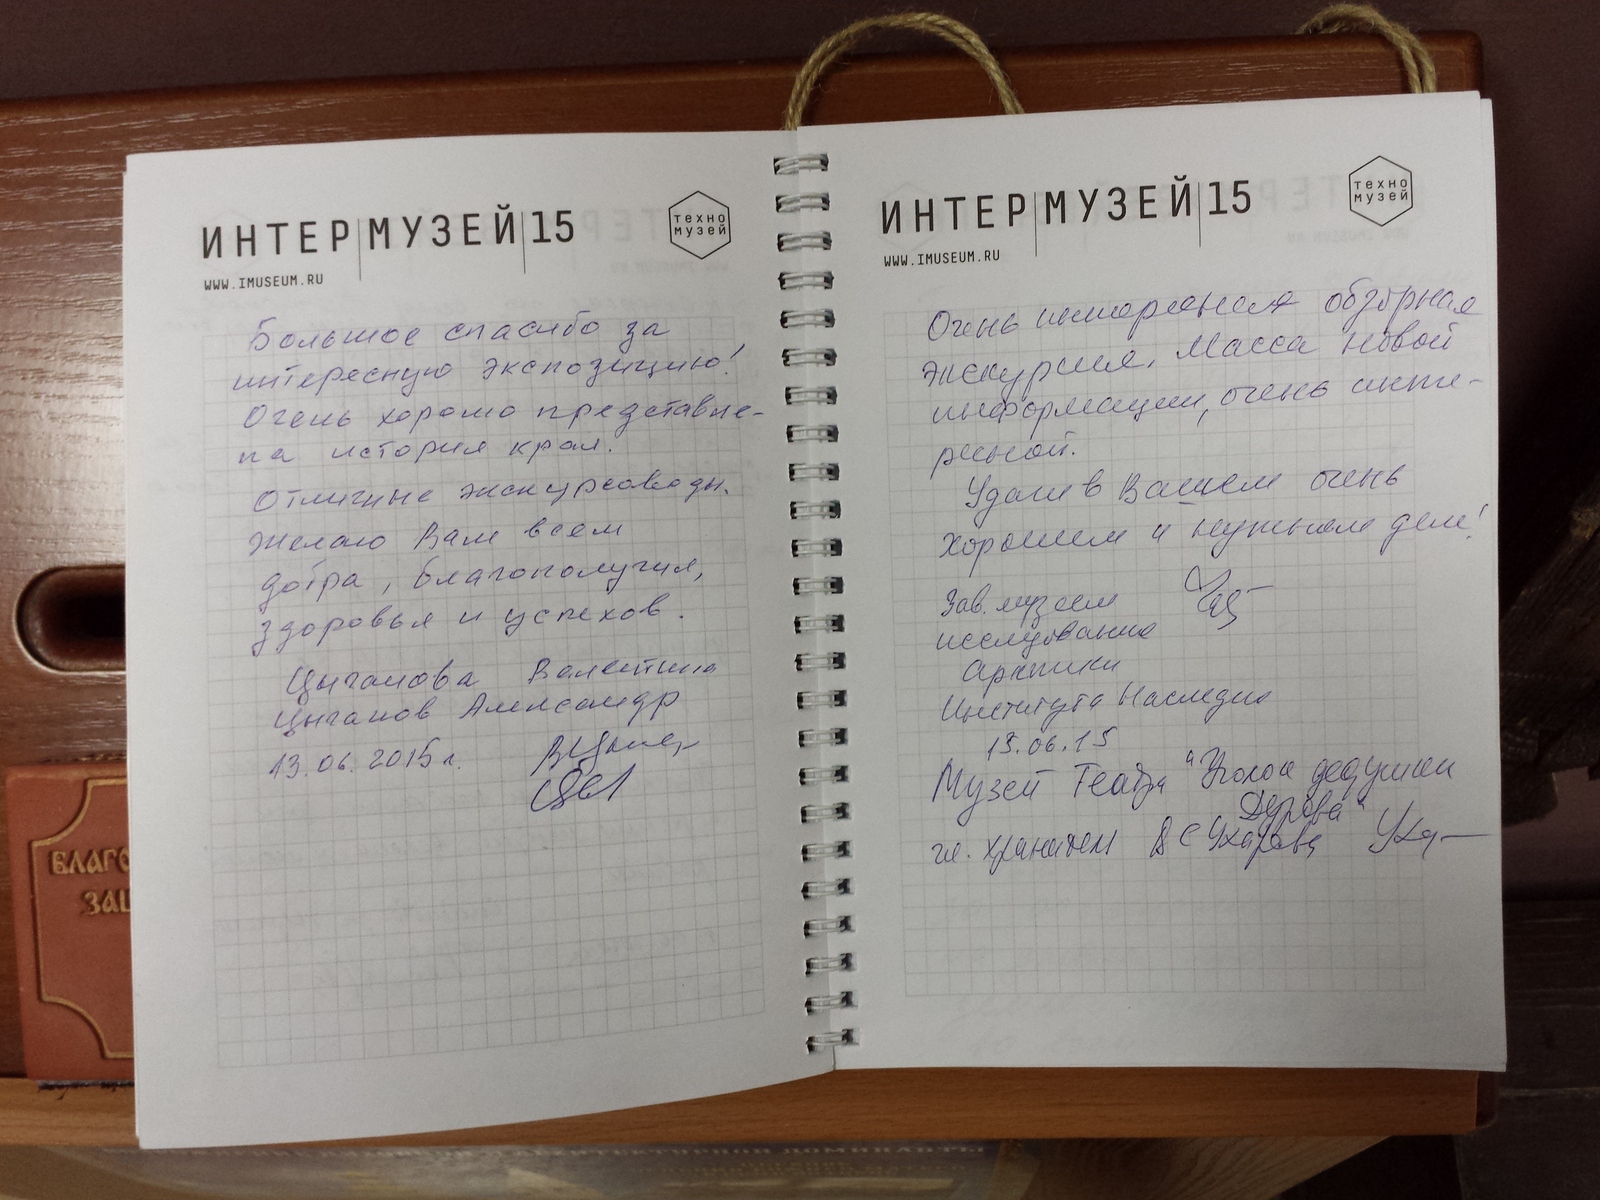 ИНТЕР|МУЗЕЙ|15
техно
музей
WWW.IMUSEUM.RU
Большое спасибо за
интересную экспозицию!
Очень хорошо представле-
на история края.
Отличные экскурсоводы.
Желаю Вам всем
добра, благополучия,
здоровья и успехов.
Цыганова Валентина
Цыганов Александр
13.06.2015 г.
ИНТЕР|МУЗЕЙ|15
техно
музей
WWW.IMUSEUM.RU
Очень интересная обзорная
экскурсия. Масса новой
информации, очень инте-
ресной.
Удачи в Вашем очень
хорошем и нужном деле!
Зав. музеем
исследования
Арктики
Института Наследия
13.06.15
Музей Театра "Уголок дедушки
Дурова"
гл. хранитель
БЛАГО
ЗАЩ
АРХИТЕКТУРНОЙ ДОМИНАНТЫ